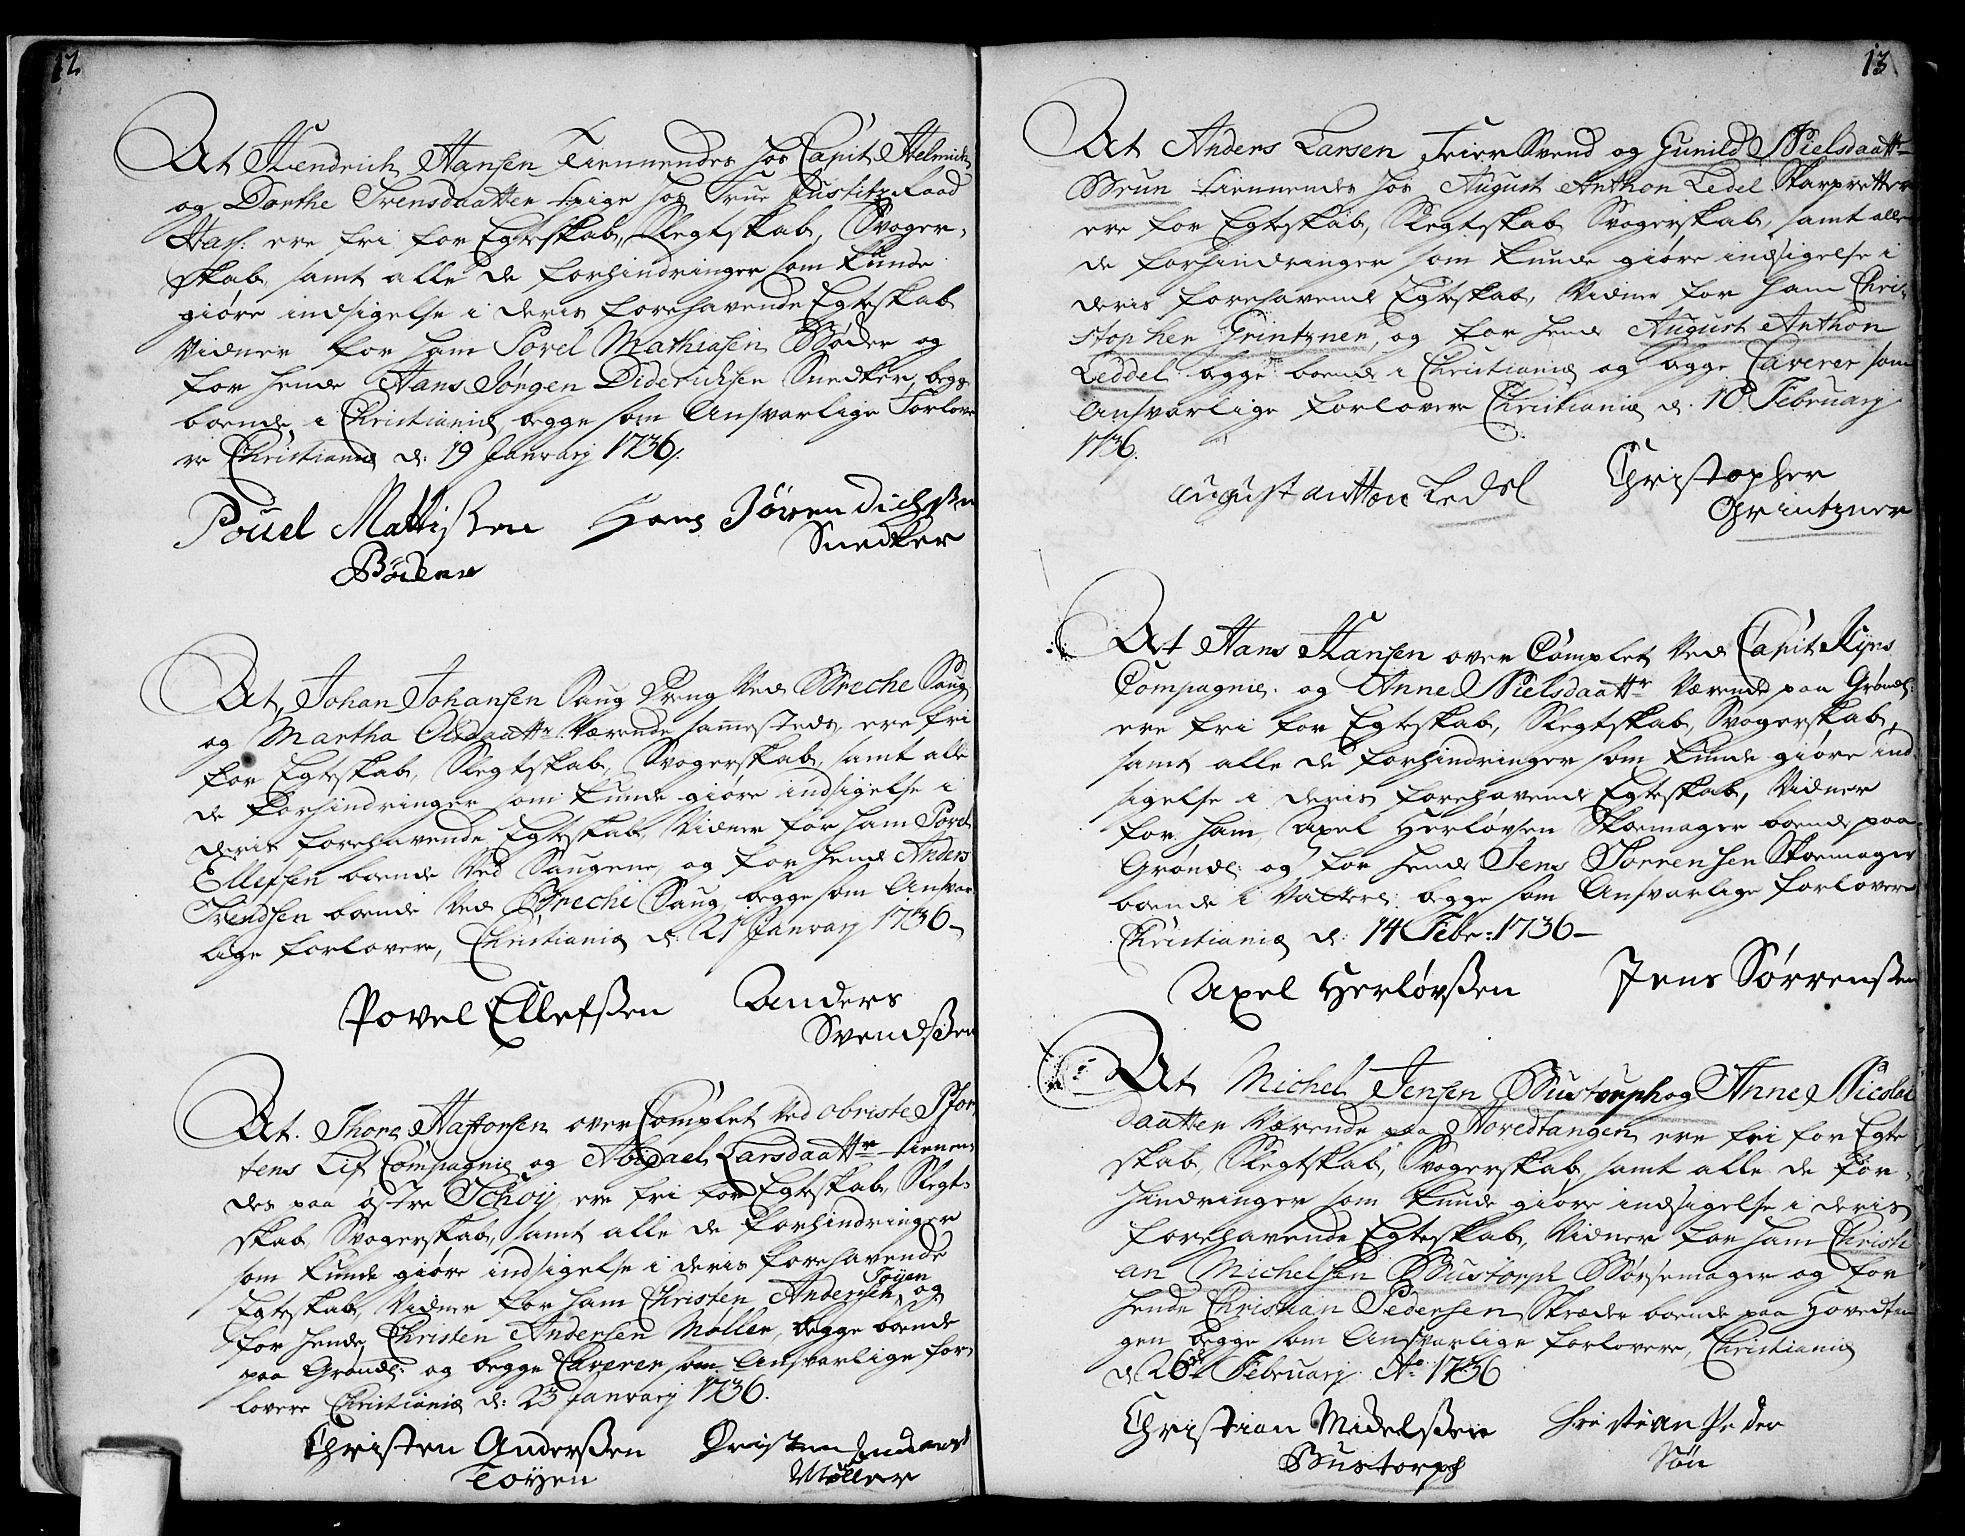 12
At Hendrich Hansen Tiennendes hos Capit. Helmich
og Dorthe Svensdaatter Pige hos Frue Justitz Raad
ere fri for Egteskab, Slegtskab, Svoger-
skab, samt alle de forhindringer som kunde
giöre indsigelse i deris forehavende Egteskab
Vidner for ham Povel Mathiasen Bøder og
for hende Hans Jörgen Diderichsen Snedker, begge
boende i Christiania begge som Ansvarlige Forlove
re Christiania d: 19 Januarij 1736.
Pouel Mattisen Hans Jören
Bödker Snedker
At, Johan Johansen Saug Dreng Ved Breche Saug
og Martha Olsdaattr Værende sammesteds, ere fri
for Egteskab, Slegtskab, Svogerskab, samt alle
de forhindringer som kunde giöre indsigelse i
deris forehavende Egteskab Vidner for ham Povel
Ellefsen boende Ved Saugene, og for hende Anders
Svendsen boende Ved Breche Saug, begge som Ansvar
lige forlovere, Christiania d: 21 Januarij 1736
Povel Ellefsen Anders
Svendsen
At. Thore Haftorsen over Complet Ved Obriste
tens Lif Compagnie og Abigael Larsdaattr tienen
des paa östre Schöÿ ere fri for Egteskab, Slegt-
skab Svogerskab, samt alle de forhindringer
som kunde giöre indsigelse i deris forehavende
Egteskab, Vidner for ham Christen Andersen Töÿen og
for hende Christen Andersen Møller, begge boende
paa Grönd: og begge Caverer som Ansvarlige for
lovere Christiania d: 23 Januarij 1736.
Christen Andersen Cristen
Töÿen Möller
13
At Anders Larsen Feier Svend og Gunild Nielsdaattr
Brun tiennendes hos August Anthon Ledel Skarpretter
ere for Egteskab, Slegtskab Svogerskab, samt alle
de forhindringer som kunde giöre indsigelse i
deris forehavende Egteskab, Vidner for ham Chri-
stopher Grintzner, og for hende August Anthon
Leddel begge boende i Christiania og begge Caverer som
Ansvarlige forlovere Christiania d. 10 Februarij
1736.
august antton Ledel Christopher
Grintzner
At Hans Hansen over Complet Ved Capit
Compagnie. og Anne Nielsdaattr Værende paa Grönd:
ere fri for Egteskab, Slegtskab, Svogerskab,
samt alle de forhindringer som kunde giöre ind
sigelse i deris forehavende Egteskab, Vidner
for ham Axel Herlövsen Skoemager boende paa
Grönd: og for hende Jens Sörrensen Skoemager
boende i Vatterl. begge som Ansvarlige forlovere
Christiania d: 14 Febr: 1736
Axel Herlövsen Jens Sörrensen
At Michel Jensen Bustorph og Anne Nicolai
daatter Værende paa Hovedtangen ere fri for Egte
skab, Slegtskab, Svogerskab, samt alle de for-
hindringer som kunde giöre indsigelse i deris
forehavende Egteskab, Vidner for ham Christi
an Michelsen Bustorph Børsemager og for
hende Christian Pedersen Skræder boende paa Hovedtan
gen begge som Ansvarlige forlovere, Christiania
d 26de Februarij Ao 1736
Christian Mickelsen Christian Peder
Bustorph Sön